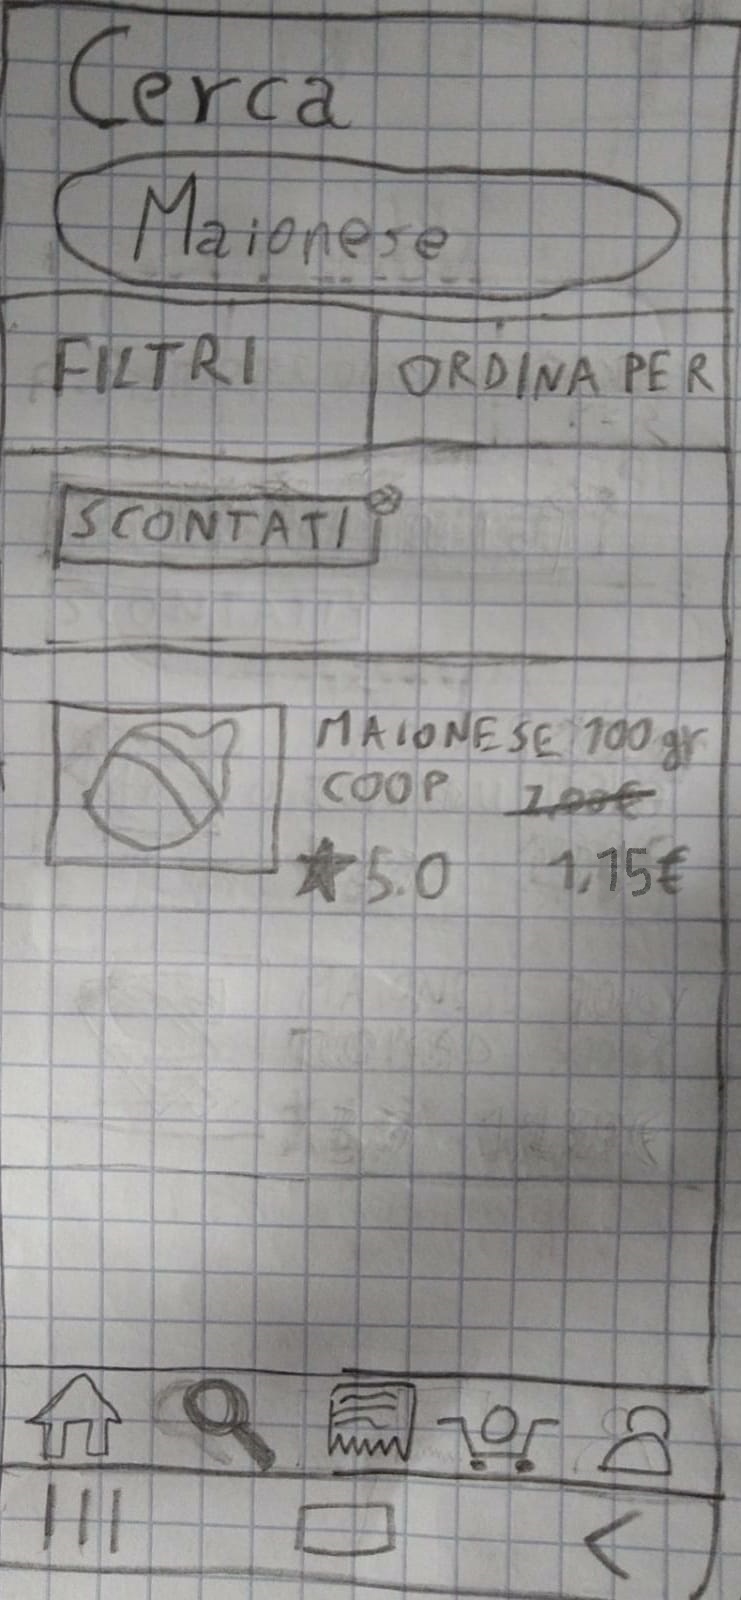 Cerca
Maionese
FILTRI
ORDINA PER
SCONTATI
MAIONESE 100gr
COOP
5.0 1,15€